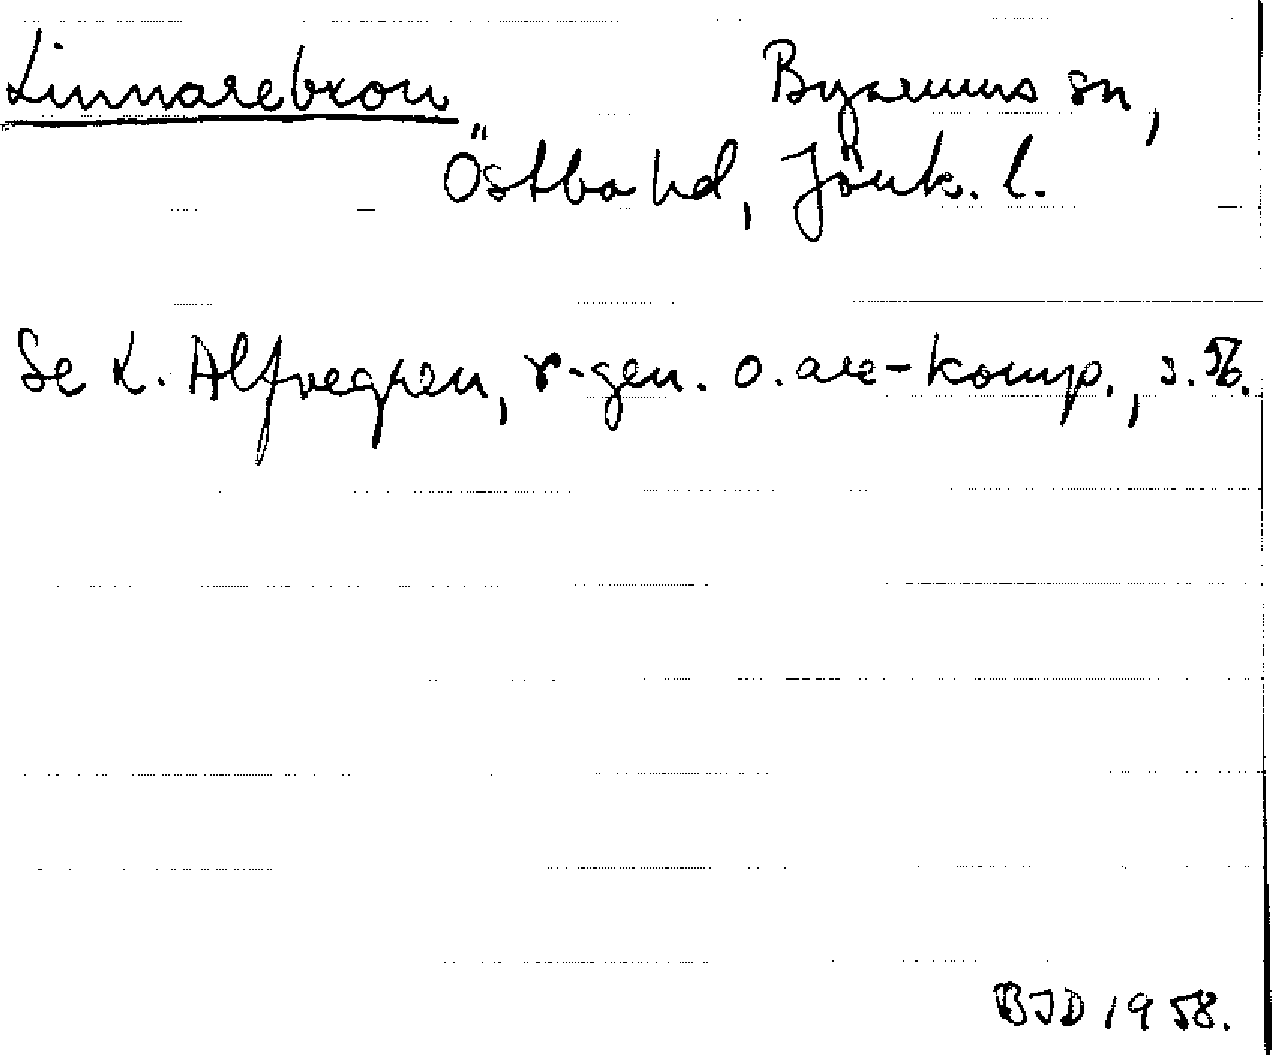 Linnarebron Byarums sn,
Östbo hd, Jönk. l.
Se L. Alfvegren, r-gen. o. are-komp., s. 56.
BJD 1958.